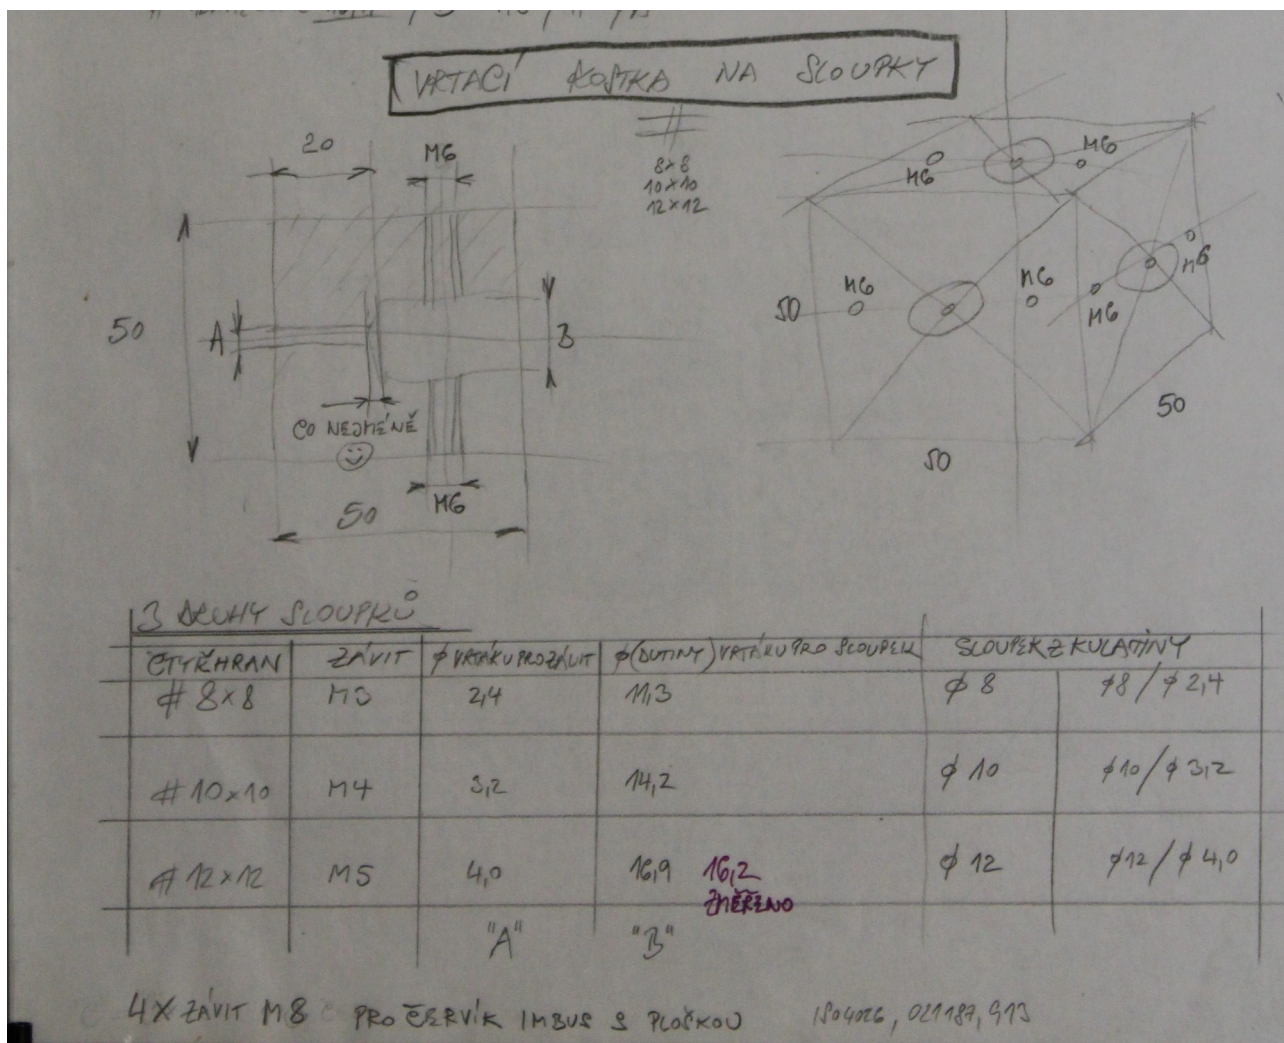 VRTACÍ KOSTKA NA SLOUPKY
8×8
10×10
12×12
20
M6
50
A
B
CO NEJMÉNĚ
M6
50
M6
M6
M6
M6
M6
M6
50
50
50
3 DRUHY SLOUPKŮ
ČTYŘHRAN ZÁVIT φ VRTÁKU PRO ZÁVIT φ(DUTINY) VRTÁKU PRO SLOUPEK SLOUPEK Z KULATINY
# 8×8 M3 2,4 11,3 φ 8 φ8/φ2,4
# 10×10 M4 3,2 14,2 φ 10 φ10/φ3,2
# 12×12 M5 4,0 16,9 16,2 φ 12 φ12/φ4,0
ZMĚŘENO
"A" "B"
4X ZÁVIT M8 PRO ČERVÍK IMBUS S PLOŠKOU ISO4026, 021187, 913